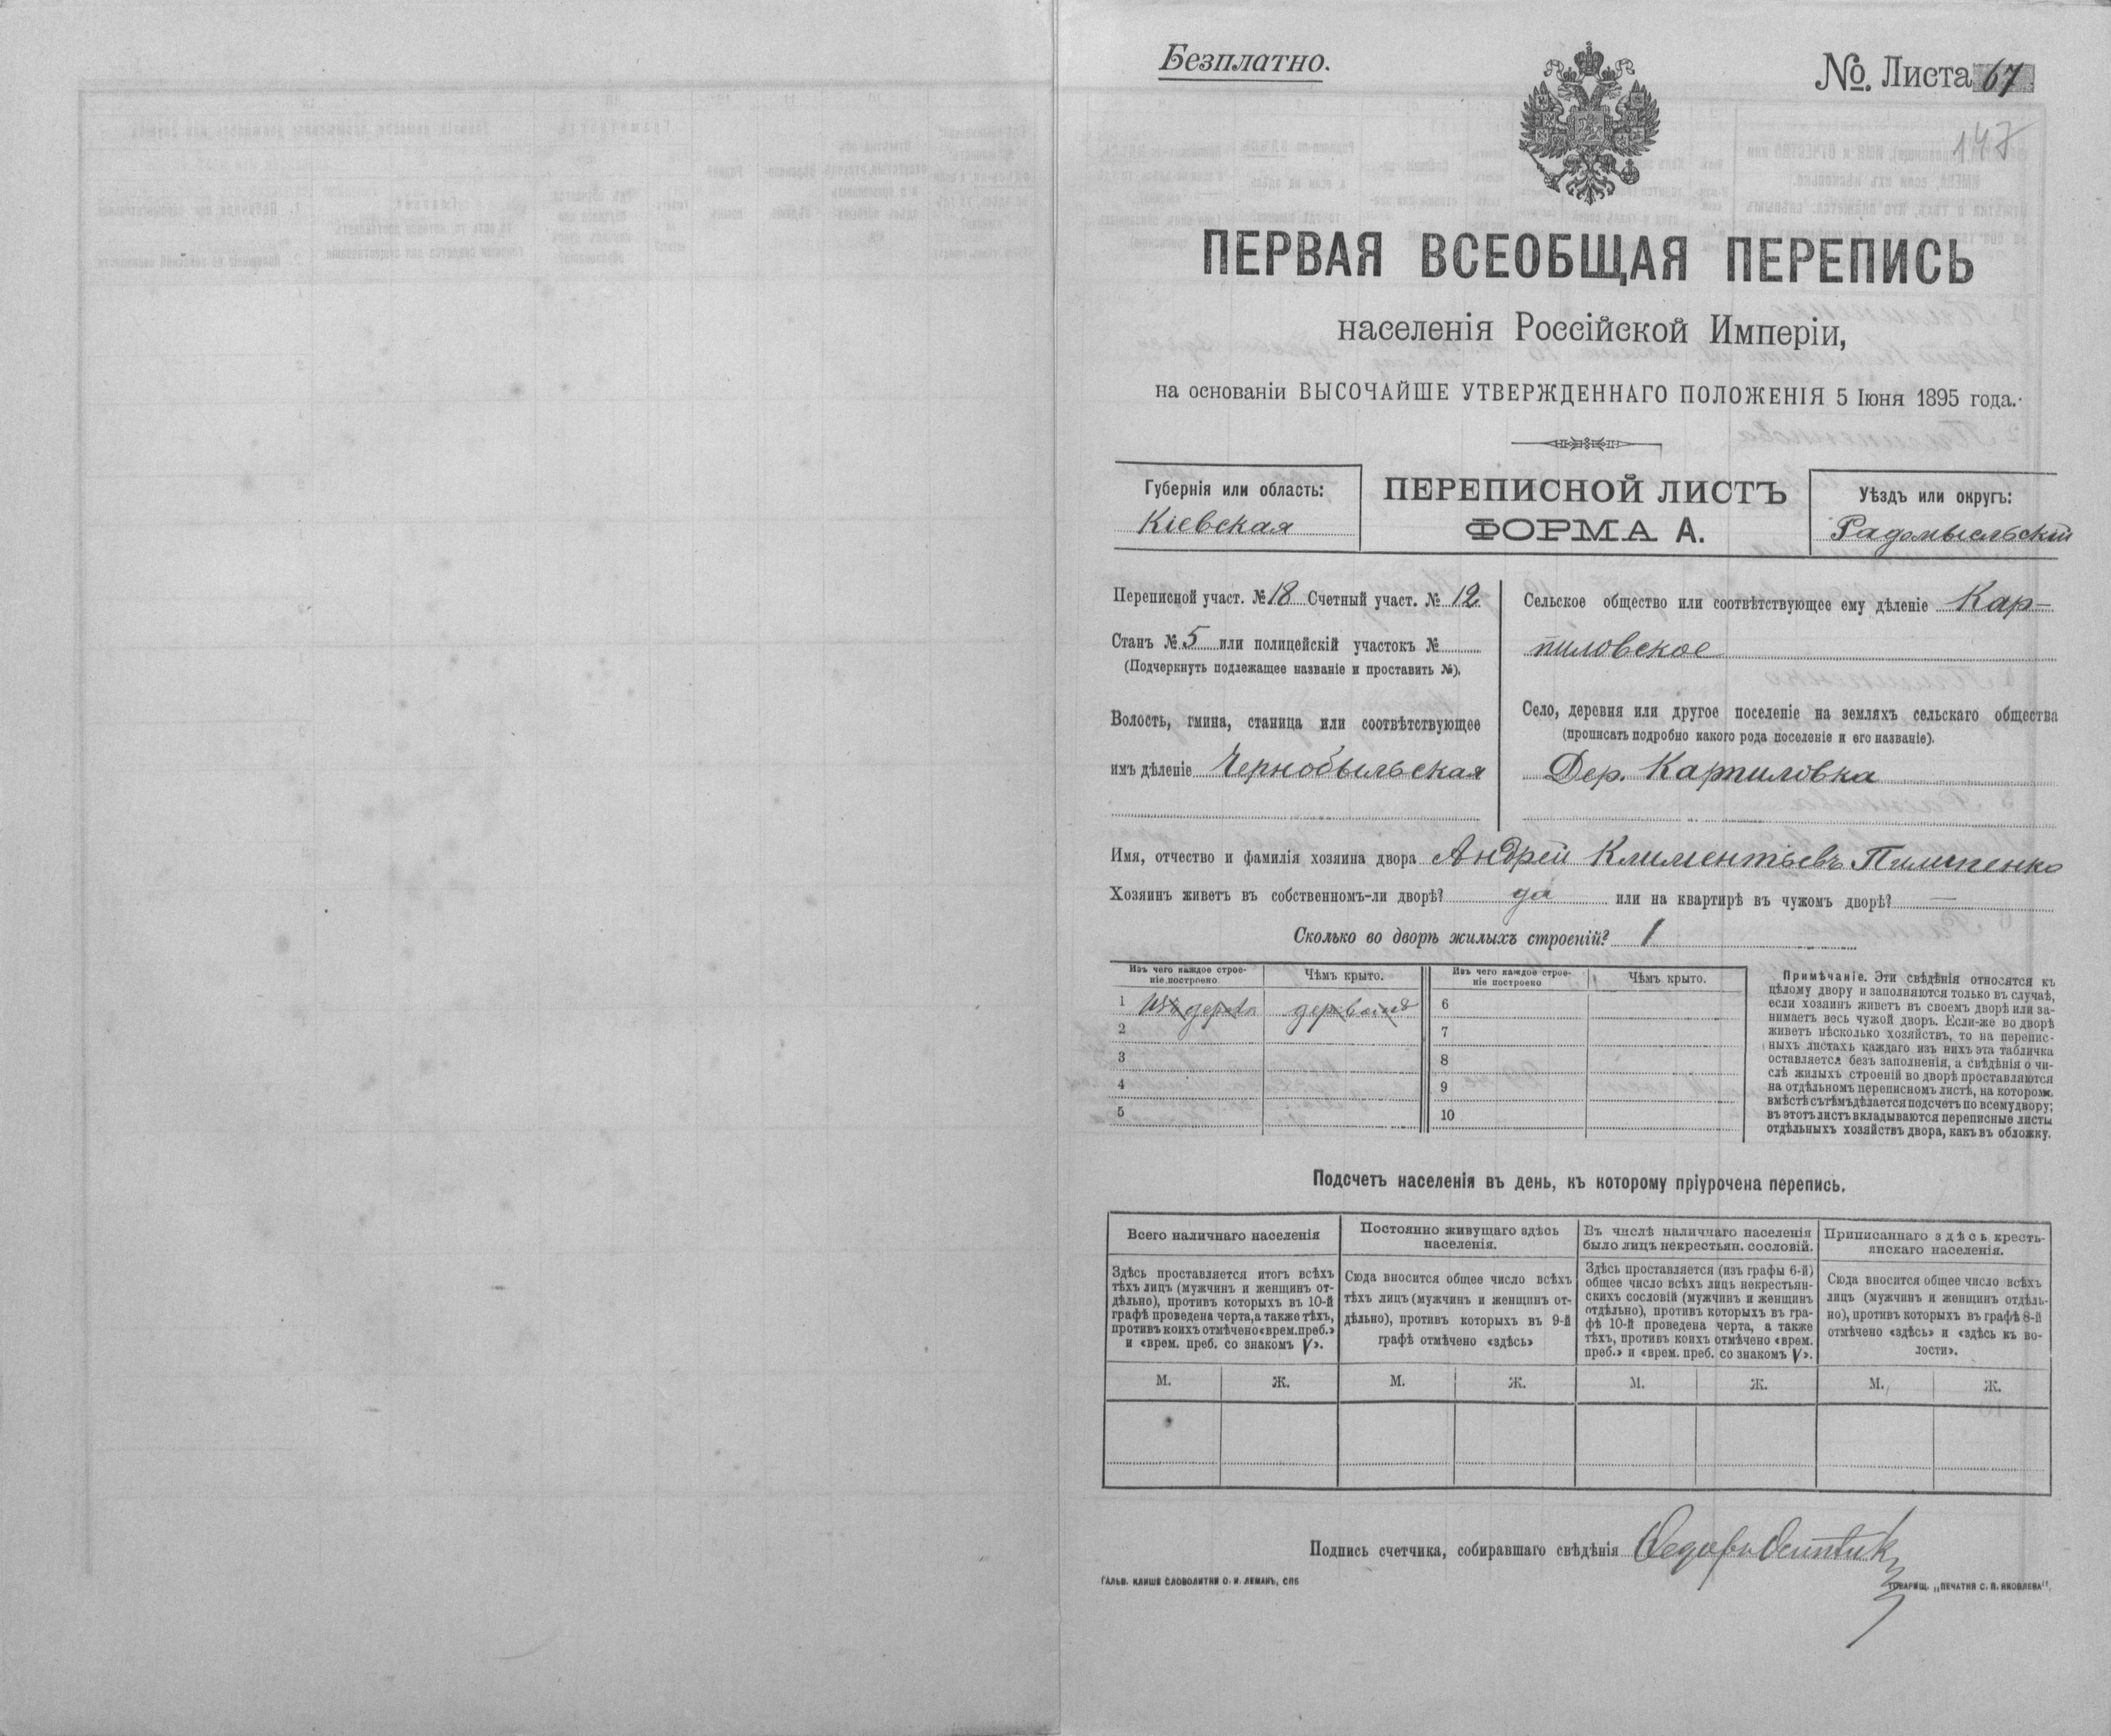 Безплатно.
№. Листа 67
147
ПЕРВАЯ ВСЕОБЩАЯ ПЕРЕПИСЬ
населенія Россійской Имперіи,
на основаніи ВЫСОЧАЙШЕ УТВЕРЖДЕННАГО ПОЛОЖЕНІЯ 5 Іюня 1895 года.
Губернія или область:
Кіевская
ПЕРЕПИСНОЙ ЛИСТЪ
ФОРМА А.
Уѣздъ или округъ:
Радомысльскій
Переписной участ. № 18 Счетный участ. № 12
Станъ № 5 или полицейскій участокъ №
(Подчеркнуть подлежащее названіе и проставить №).
Волость, гмина, станица или соотвѣтствующее
имъ дѣленіе Чернобыльская
Сельское общество или соотвѣтствующее ему дѣленіе Кар-
пиловское
Село, деревня или другое поселеніе на земляхъ сельскаго общества
(прописать подробно какого рода поселеніе и его названіе).
Дер. Карпиловка
Имя, отчество и фамилія хозяина двора Андрей Климентьевъ Пилипенко
Хозяинъ живетъ въ собственномъ-ли дворѣ? да или на квартирѣ въ чужомъ дворѣ? —
Сколько во дворѣ жилыхъ строеній? 1
Изъ чего каждое строе-
ніе построено
Чѣмъ крыто.
Изъ чего каждое строе-
ніе построено
Чѣмъ крыто.
1
6
2
7
3
8
4
9
5
10
Примѣчаніе. Эти свѣдѣнія относятся къ
цѣлому двору и заполняются только въ случаѣ,
если хозяинъ живетъ въ своемъ дворѣ или за-
нимаетъ весь чужой дворъ. Если-же во дворѣ
живетъ нѣсколько хозяйствъ, то на перепис-
ныхъ листахъ каждаго изъ нихъ эта табличка
оставляется безъ заполненія, а свѣдѣнія о чи-
слѣ жилыхъ строеній во дворѣ проставляются
на отдѣльномъ переписномъ листѣ, на которомъ
вмѣстѣ съ тѣмъ дѣлается подсчетъ по всему двору;
въ этотъ листъ вкладываются переписные листы
отдѣльныхъ хозяйствъ двора, какъ въ обложку.
Подсчетъ населенія въ день, къ которому пріурочена перепись.
Всего наличнаго населенія
Здѣсь проставляется итогъ всѣхъ
тѣхъ лицъ (мужчинъ и женщинъ от-
дѣльно), противъ которыхъ въ 10-й
графѣ проведена черта, а также тѣхъ,
противъ коихъ отмѣчено «врем. преб.»
и «врем. преб. со знакомъ V».
Постоянно живущаго здѣсь
населенія.
Сюда вносится общее число всѣхъ
тѣхъ лицъ (мужчинъ и женщинъ от-
дѣльно), противъ которыхъ въ 9-й
графѣ отмѣчено «здѣсь»
Въ числѣ наличнаго населенія
было лицъ некрестьян. сословій.
Здѣсь проставляется (изъ графы 6-й)
общее число всѣхъ лицъ некрестьян-
скихъ сословій (мужчинъ и женщинъ
отдѣльно), противъ которыхъ въ гра-
фѣ 10-й проведена черта, а также
тѣхъ, противъ коихъ отмѣчено «врем.
преб.» и «врем. преб. со знакомъ V».
Приписаннаго здѣсь кресть-
янскаго населенія.
Сюда вносится общее число всѣхъ
лицъ (мужчинъ и женщинъ отдѣль-
но), противъ которыхъ въ графѣ 8-й
отмѣчено «здѣсь» и «здѣсь къ во-
лости».
М. Ж. М. Ж. М. Ж. М. Ж.
Подпись счетчика, собиравшаго свѣдѣнія
ГАЛЬВ. КЛИШЕ СЛОВОЛИТНИ О. И. ЛЕМАНЪ, СПБ
ТОВАРИЩ. „ПЕЧАТНЯ С. П. ЯКОВЛЕВА".